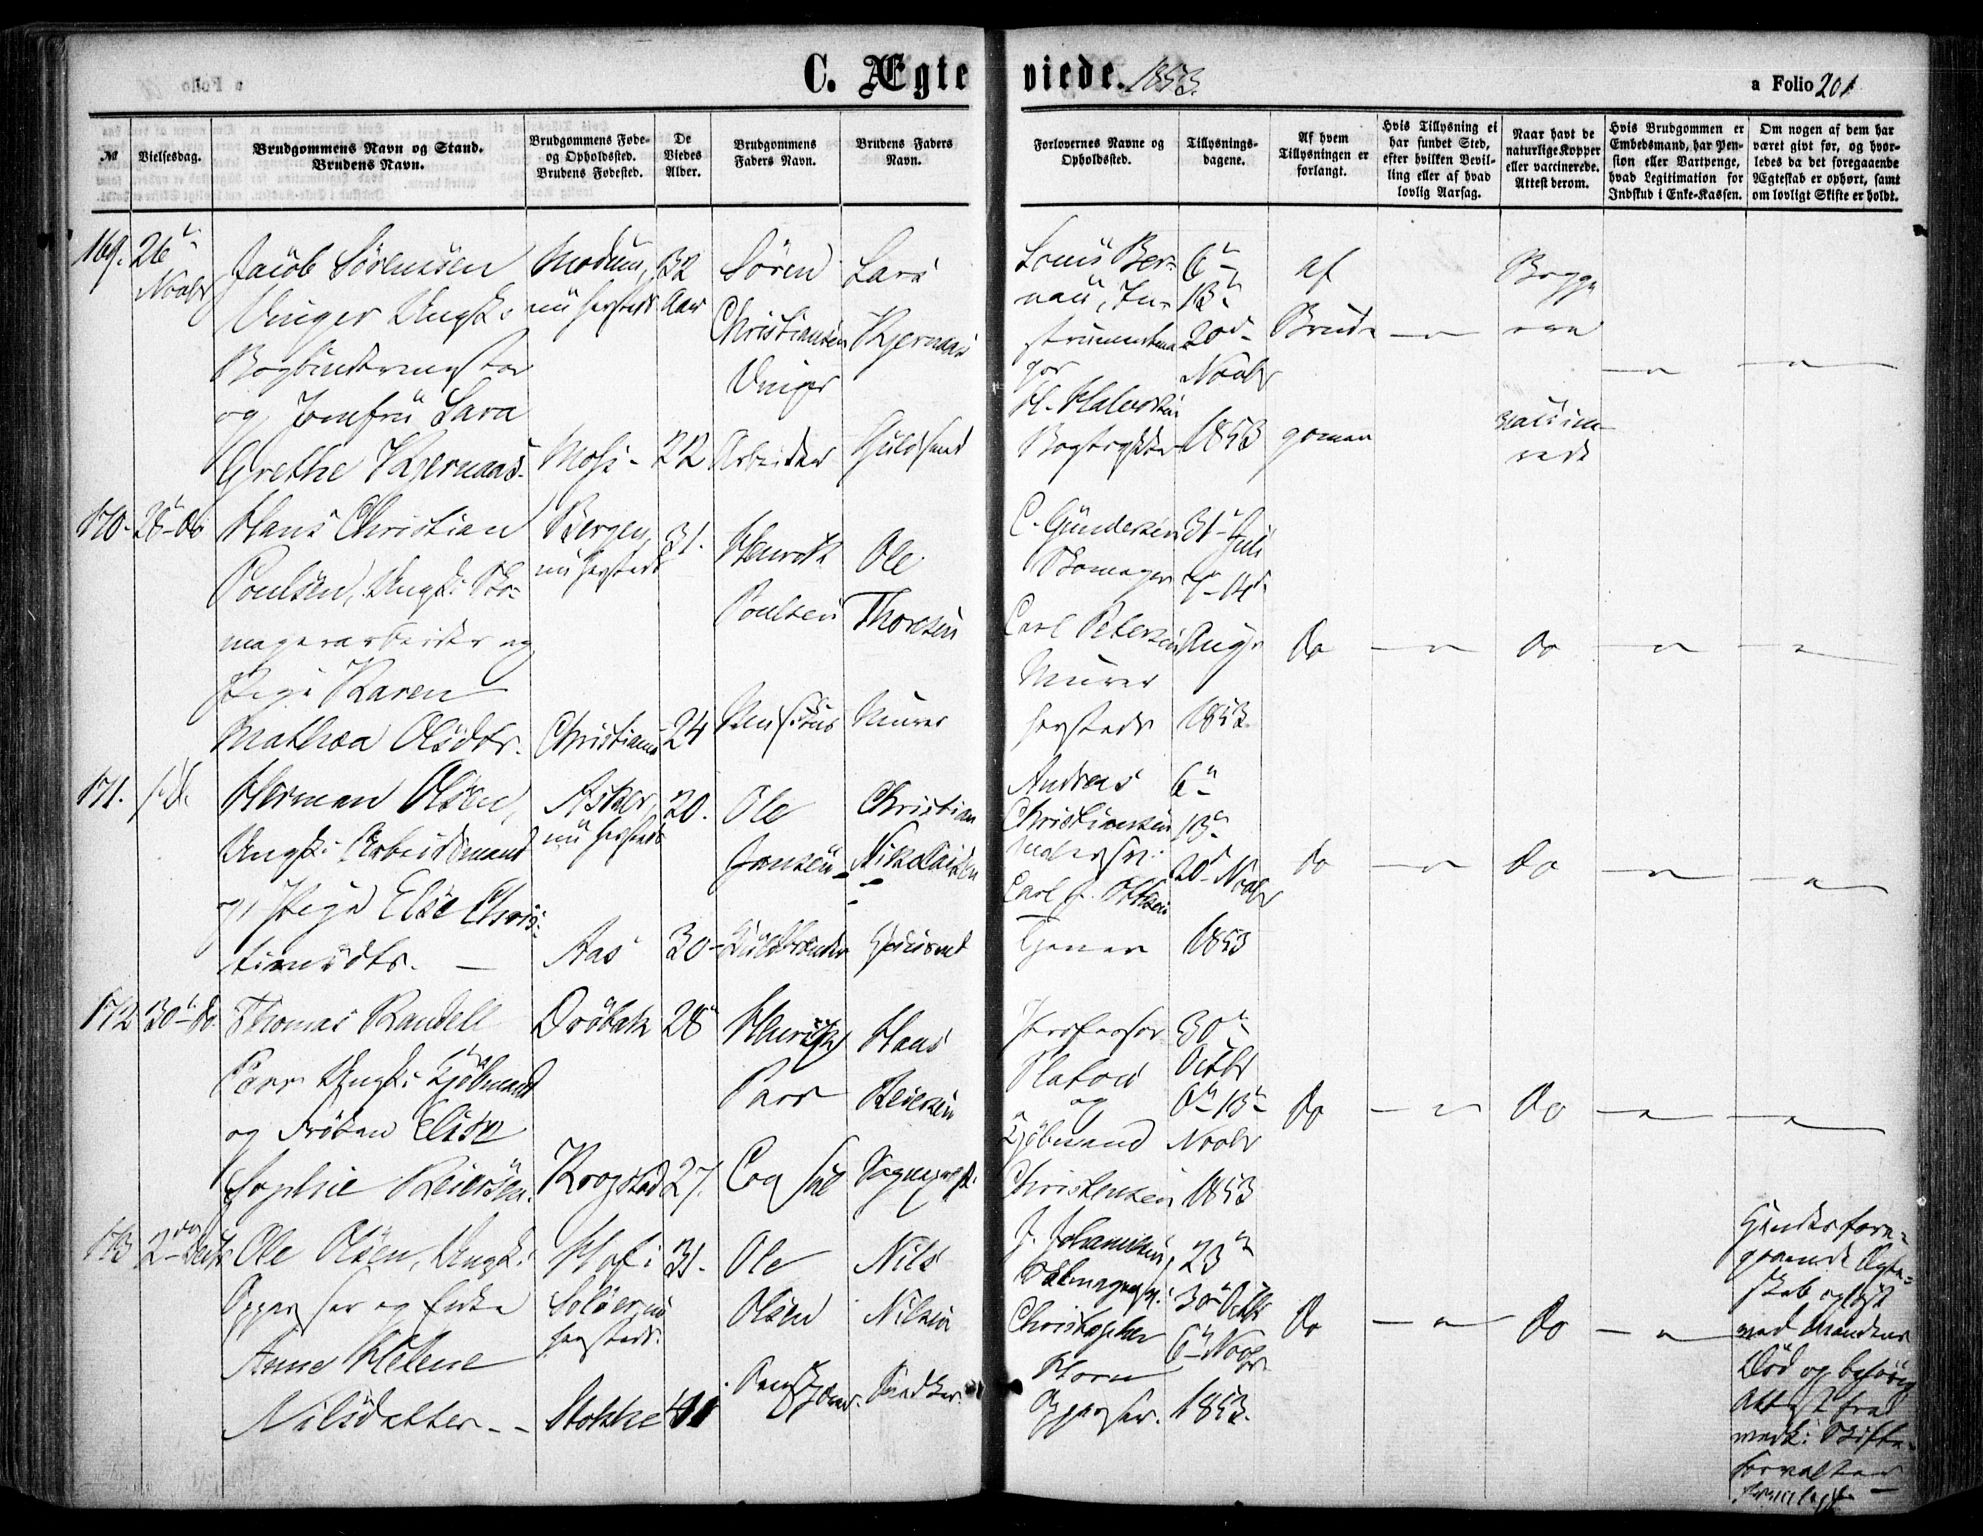 C. Ægteviede. 1853.
a Folio 201
№
Vielsesdag.
Brudgommens Navn og Stand.
Brudens Navn.
Brudgommens Føde-
og Opholdssted.
Brudens Fødested.
De
Viedes
Alder.
Brudgommens
Faders Navn.
Brudens Faders
Navn.
Forlovernes Navne og
Opholdssted.
Tillysnings-
dagene.
Af hvem
Tillysningen er
forlangt.
Hvis Tillysning ei
har fundet Sted,
efter hvilken Bevil-
ling eller af hvad
lovlig Aarsag.
Naar havt de
naturlige Kopper
eller vaccinerede.
Attest derom.
Hvis Brudgommen er
Embedsmand, har Pen-
sion eller Vartpenge,
hvad Legitimation for
Indskud i Enke-Kassen.
Om nogen af dem har
været gift før, og hvor-
ledes da det foregaaende
Ægteskab er ophørt, samt
om lovligt Skifte er holdt.
169. 26
Novbr
Jacob Sørensen
Unger Ungk:
Bogbindermester
og Jomfru Sara
Grethe Kjernaas.
Modum,
nu hersteds
Moss -
32
Aar
22
Søren
Christiansen
Unger
Arbeider
Lars
Kjernaas
Huusmand
Louis Ber-
nau, In-
strumentma
ger
H. Halvorsen
Bogtrykker
6
13
20d
Novbr
1853
af
Brud-
gomen
Begge
ere
vaccine-
rede
170. 28 do
Hans Christian
Poulsen, Ungk: Sko-
magerarbeider og
Pige Karen
Mathea Olsdtr.
Bergen,
nu hersteds
Christiania
31.
24
Henrik
Poulsen
Ole
Thoresen
Murer
C. Gundersen
Skomager
Carl Petersen
Murer
hersteds
31 Juli
7 - 14d
Aug
1853
do
do
171.
Herman Olsen,
Ungk: Arbeidsmand
og Pige Else Chris-
tiansdtr.
Asker,
nu hersteds
Aas
20.
30
Ole
Jonsen
Christian
Nikolaisen
Huusmand
Andreas
Christiansen
Carl J. Olsen
Tjener
6
13
20d Novbr
1853
do
do
172 30 do
Thomas Randell
Parr Ungk: Kjøbmand
og Frøken Elise
Sophie Reiersen.
Drøbak
Krogstad
28
27.
Henrik
Parr
Hans
Reiersen
Sognepræst.
Professor
Platou
og
Kjøbmand
Christensen
30
Octbr
6 13
Novbr
1853
do
do
173 2den Decbr
Ole Olsen, Ungk:
Oppasser og Enke
Anne Helene
Nilsdatter
Hof i
Solør, nu
hersteds.
Stokke
31.
41
Ole
Olsen
Nils
Nilsen
Snedker.
J. Johannesen,
Christopher
Horn
Oppasser.
23
30 Octbr
6 Novbr
1853.
do
do
Hendes fore-
gaaende Ægte-
skab opløst
ved Mandens
Død og behørig
Attest fra
vedk: Skifte-
forvalter
fremlagt